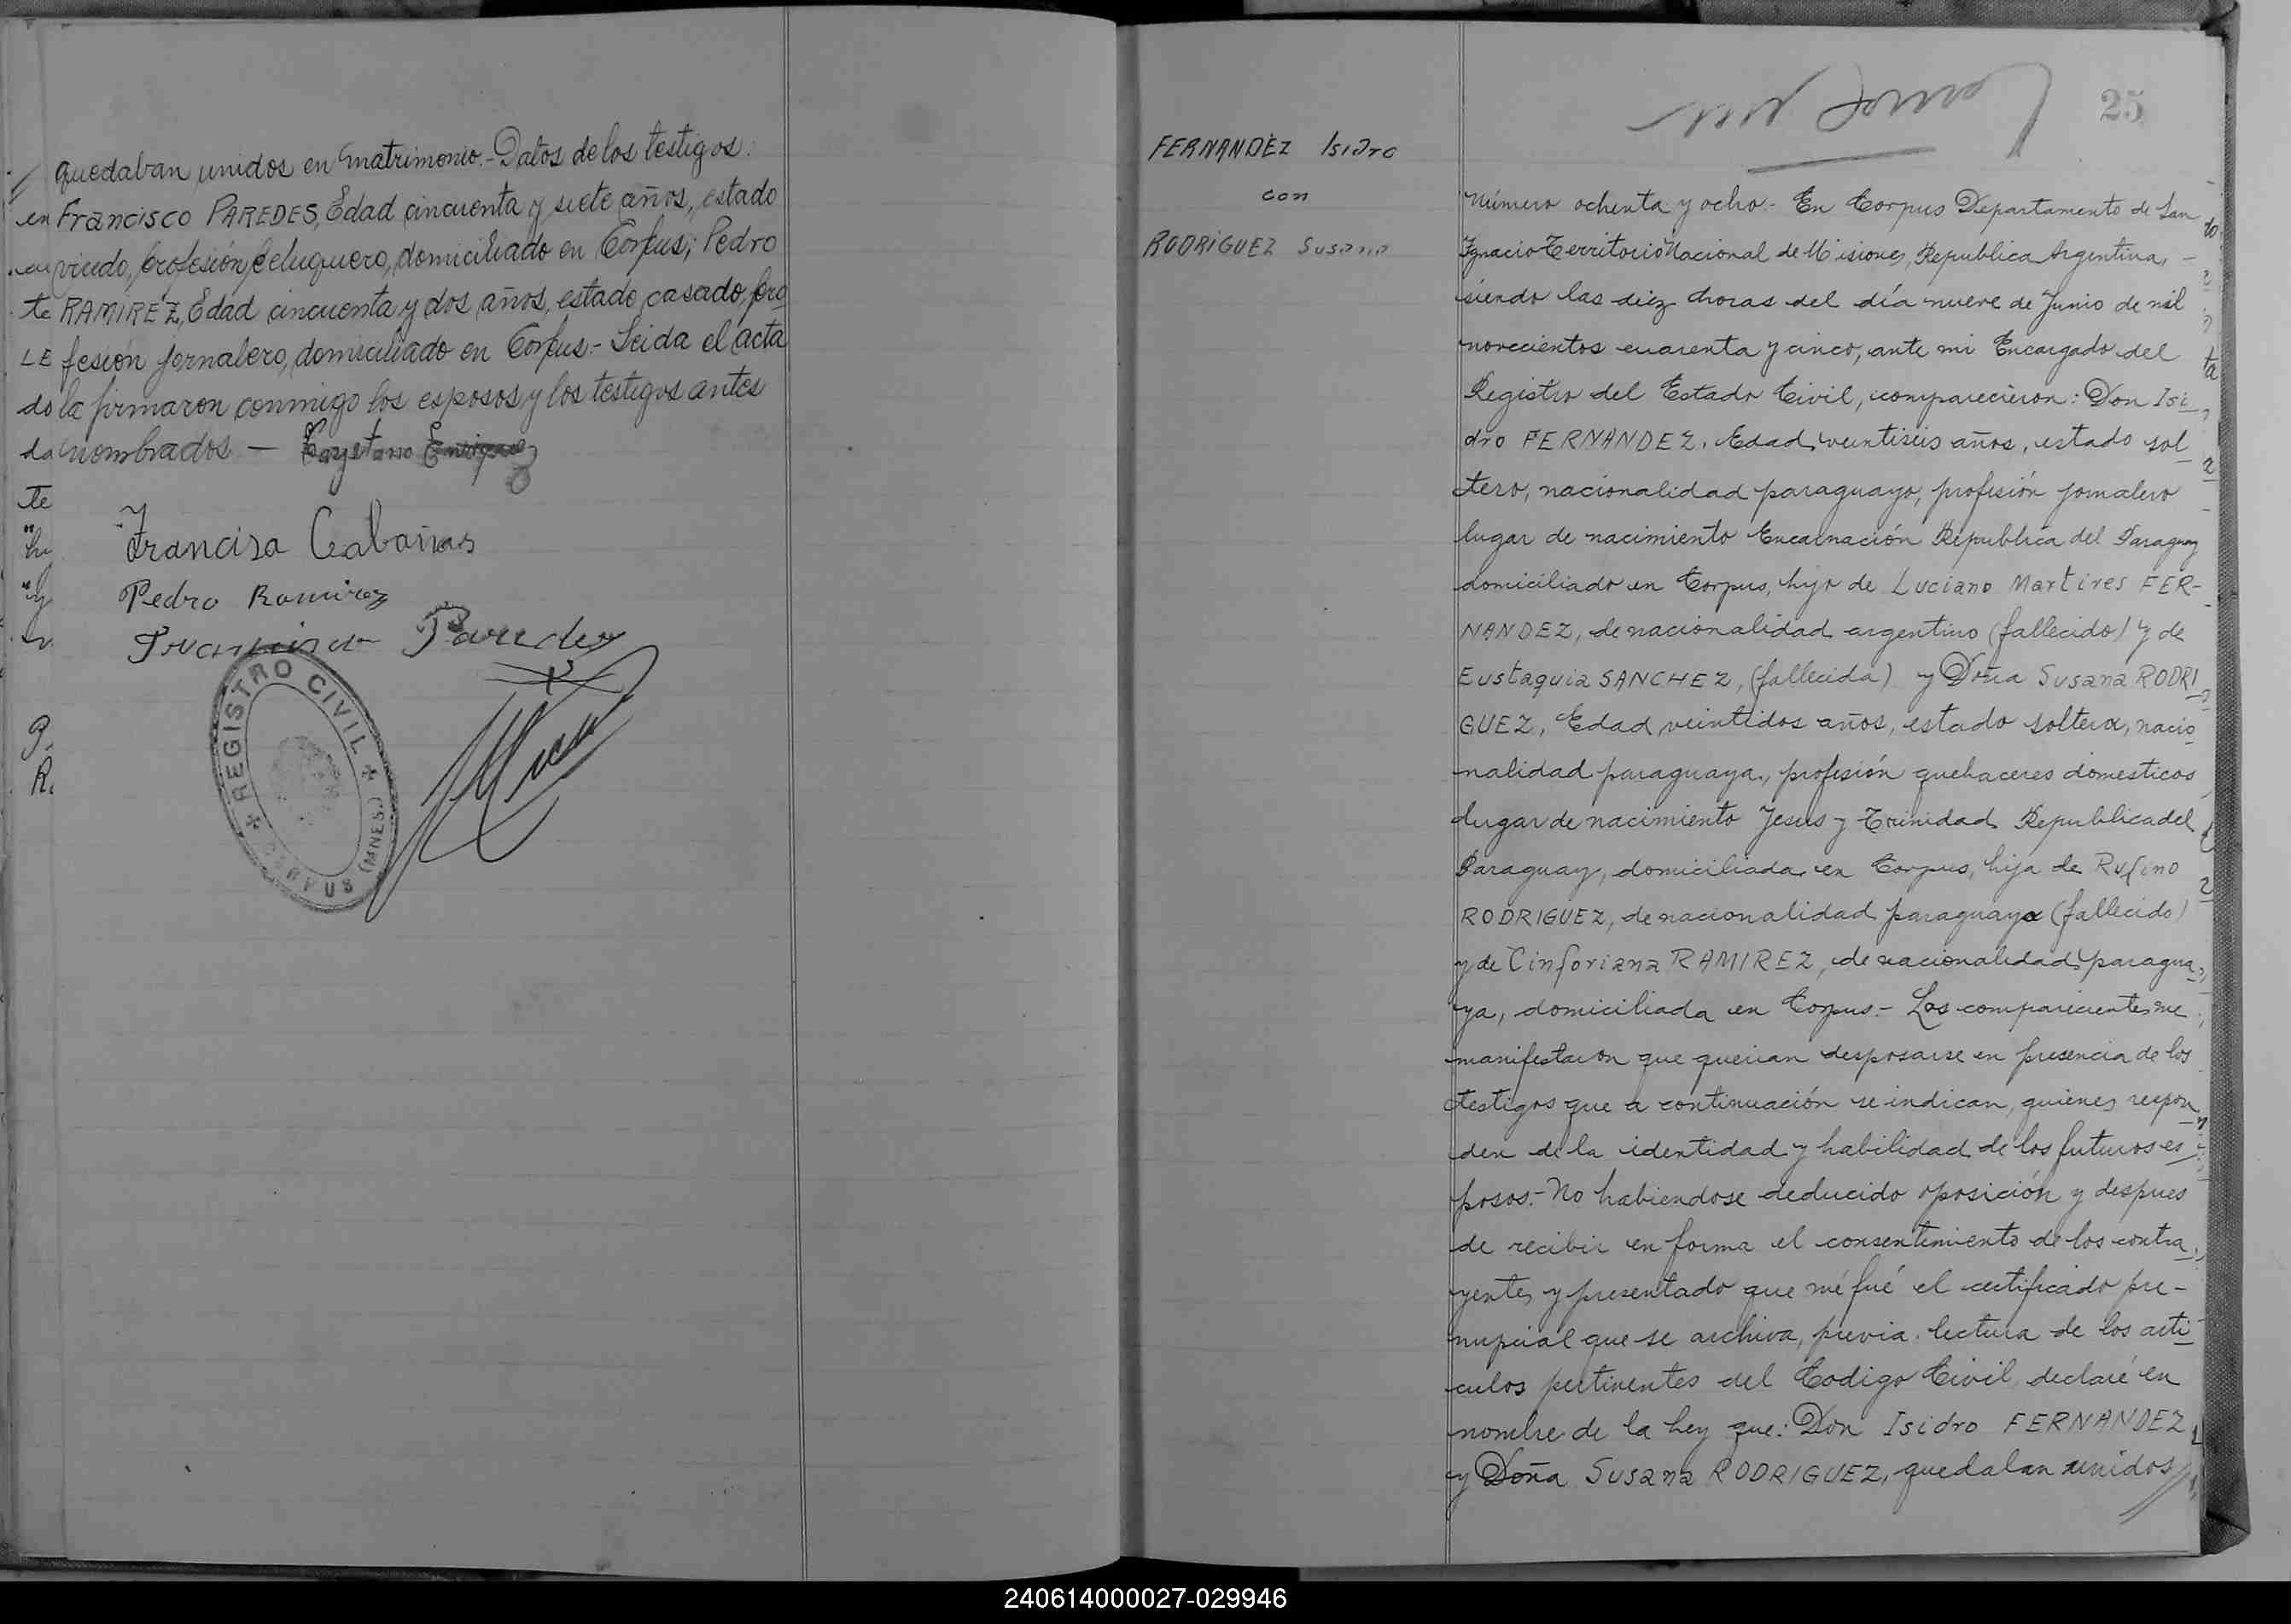 quedaban unidos en matrimonio.- Datos de los testigos:
Francisco PAREDES, Edad cincuenta y siete años, estado
viudo, profesión peluquero, domiciliado en Corpus; Pedro
RAMIREZ, Edad cincuenta y dos años, estado casado, pro
fesión jornalero, domiciliado en Corpus.- Leida el acta
la firmaron conmigo los esposos y los testigos antes
nombrados — Cayetano Enriquez
Francisca Cabañas
Pedro Ramirez
Francisco Paredes
REGISTRO CIVIL
CORPUS (MNES.)
FERNANDEZ Isidro
con
RODRIGUEZ Susana
25
Número ochenta y ocho.- En Corpus Departamento de San
Ignacio Territorio Nacional de Misiones, Republica Argentina, -
siendo las diez horas del día nueve de Junio de mil
novecientos cuarenta y cinco, ante mi Encargado del
Registro del Estado Civil, comparecieron: Don Isi
dro FERNANDEZ. Edad veintiseis años, estado sol
tero, nacionalidad paraguayo, profesión jornalero
lugar de nacimiento Encarnación Republica del Paraguay
domiciliado en Corpus, hijo de Luciano Martires FER-
NANDEZ, de nacionalidad argentino (fallecido) y de
Eustaquia SANCHEZ, (fallecida) y Doña Susana RODRI
GUEZ, Edad veintidos años, estado soltera, nacio
nalidad paraguaya, profesión quehaceres domesticos
lugar de nacimiento Jesus y Trinidad Republica del
Paraguay, domiciliada en Corpus, hija de Rufino
RODRIGUEZ, de nacionalidad paraguaya (fallecido)
y de Cinforiana RAMIREZ, de nacionalidad paragua
ya, domiciliada en Corpus.- Los comparecientes me
manifestaron que querian desposarse en presencia de los
testigos que a continuación se indican, quienes respon
den de la identidad y habilidad de los futuros es
posos.- No habiendose deducido oposición y despues
de recibir en forma el consentimiento de los contra
yentes y presentado que me fué el certificado pre-
nupcial que se archiva, previa lectura de los arti
culos pertinentes del Codigo Civil declaré en
nombre de la Ley que: Don Isidro FERNANDEZ
y Doña Susana RODRIGUEZ, quedaban unidos //
240614000027-029946